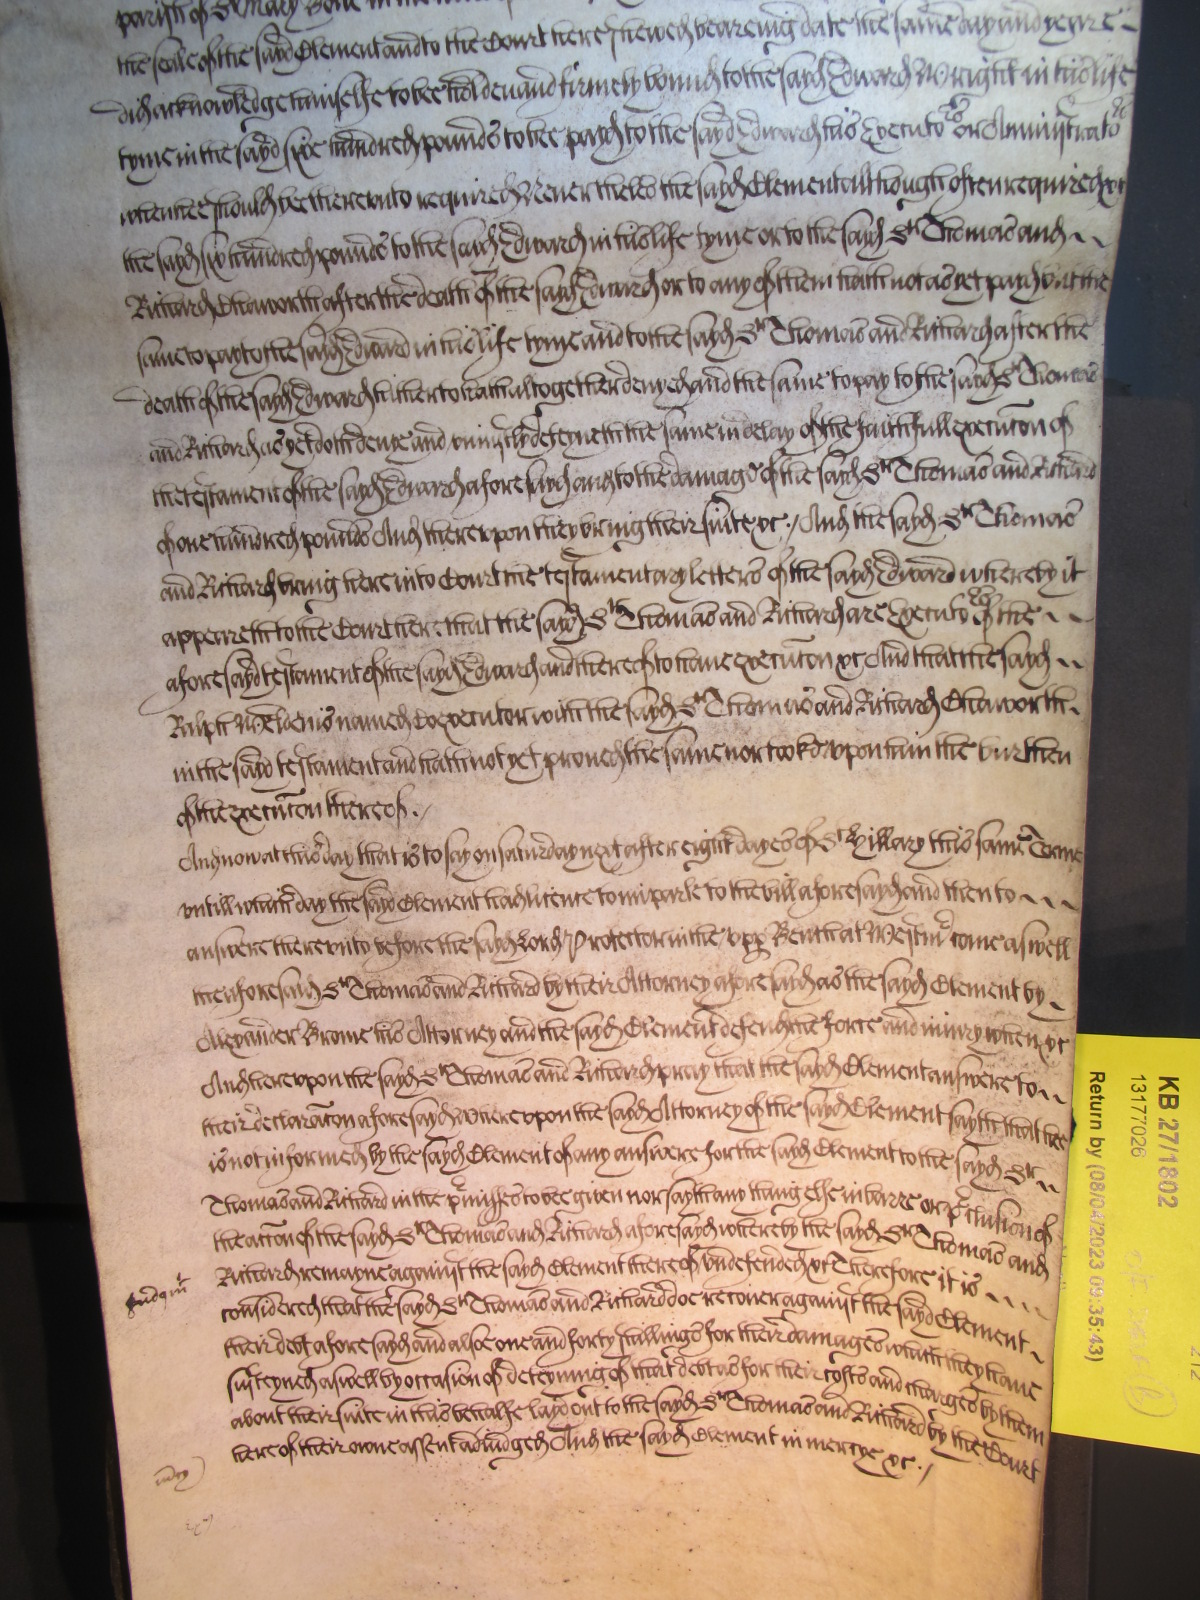 parish of St Mary Bowe in the
the seale of the sayd Clement and to the Court here shewed beareing date the same day and yeare
did acknowledge himselfe to bee holden and firmely bound to the sayd Edward Wright in his life
tyme in the sayd six hundred pounds to bee payd to the sayd Edward his Executors or Administrators
when hee should bee thereunto required Neverthelesse the sayd Clement although often required &c
the sayd six hundred pounds to the sayd Edward in his life tyme or to the sayd Sr Thomas and
Richard Chaworth after the death of the sayd Edward or to any of them hath not as yet payd but the
same to pay to the sayd Edward in his life tyme and to the sayd Sr Thomas and Richard after the
death of the sayd Edward hitherto hath altogether denyed and the same to pay to the sayd Sr Thomas
and Richard as yet doth denye and uniustly deteyneth the same in delay of the faithfull execucon of
the testament of the sayd Edward aforesayd and to the damage of the sayd Sr Thomas and Richard
of one hundred pounds And thereupon they bring their suite &c. / And the sayd Sr Thomas
and Richard bring here into Court the testamentary letters of the sayd Edward whereby it
appeareth to the Court here that the sayd Sr Thomas and Richard are Executors of the
aforesayd testament of the sayd Edward and thereof to have execucon &c And that the sayd
Ralph is named Coexecutor with the sayd Sr Thomas and Richard Chaworth
in the sayd testament and hath not yet proved the same nor tooke upon him the burthen
of the execucon thereof. /
And now at this day that is to say on saturday next after eight dayes of St Hillary this same Terme
untill which day the sayd Clement had licence to imparle to the bill aforesayd and then to
answere thereunto before the sayd Lord Protector in the upp Bench at Westmr come aswell
the aforesaid Sr Thomas and Richard by their Attorney aforesayd as the sayd Clement by
Alexander Brome his Attorney and the sayd Clement defend the force and iniury when &c
And hereupon the sayd Sr Thomas and Richard pray that the sayd Clement answere to
their declaracon aforesayd Whereupon the sayd Attorney of the sayd Clement sayth that hee
is not informed by the sayd Clement of any answere for the sayd Clement to the sayd Sr
Thomas and Richard in the pmisses to bee given nor sayth any thing else in barre or pclusion of
the accon of the sayd Sr Thomas and Richard aforesayd whereby the sayd Sr Thomas and
Richard remayne against the sayd Clement thereof undefended &c Therefore it is
considered that the sayd Sr Thomas and Richard doe recover against the sayd Clement
their debt aforesayd and alsoe one and forty shillings for their damages which they have
susteyned aswell by occasion of deteyning of that debt as for their costs and charges by them
about their suite in this behalfe layd out to the sayd Sr Thomas and Richard by the Court
here of their owne assent adiudged And the sayd Clement in mercye &c. /
Judgm
mcy
KB 27/1802
13177026
Return by (08/04/2023 09:35:43)